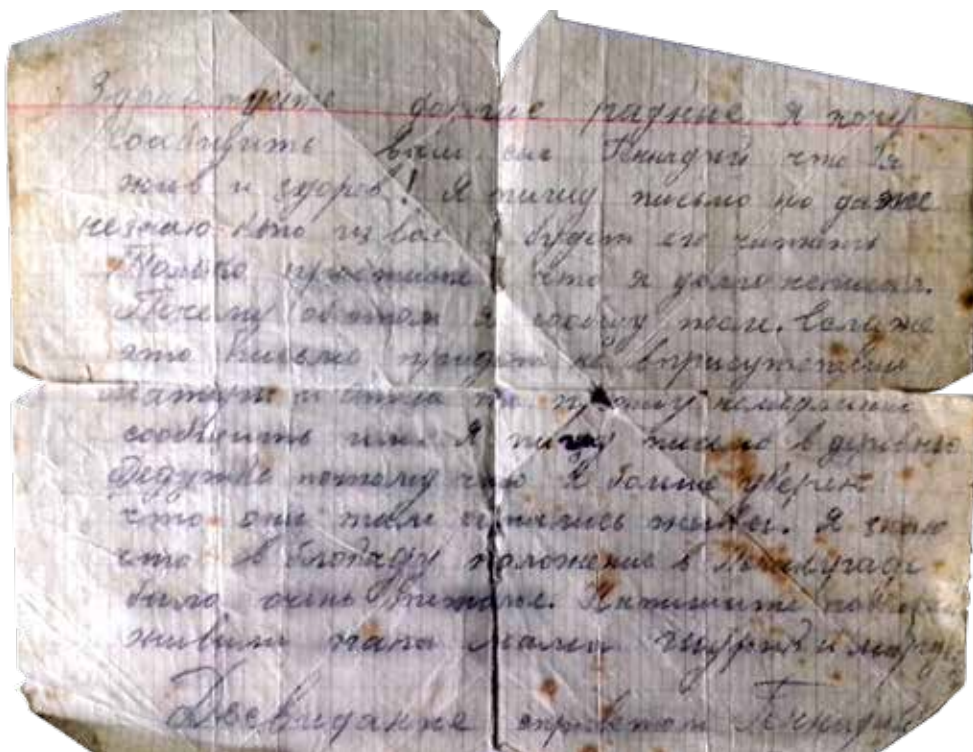 Здравствуйте дорогие радные. Я хочу
сообщить вам сын Геннадий что я
жив и здоров! Я пишу письмо но даже
незнаю кто из вас будет его читать
Только простите что я долго неписал.
Почему обэтом я сообщу после. Если же
это письмо придет не вприсутствии
матери и отца то прошу немедленно
сообщить им. Я пишу письмо в деревню
Дедушке потому что я больше уверен
что они там остались живы. Я знаю
что в блокаду положение в Ленинграде
было очень тяжолые. Напишите
живы ли папа мама и
Досвидание сприветом Геннадий